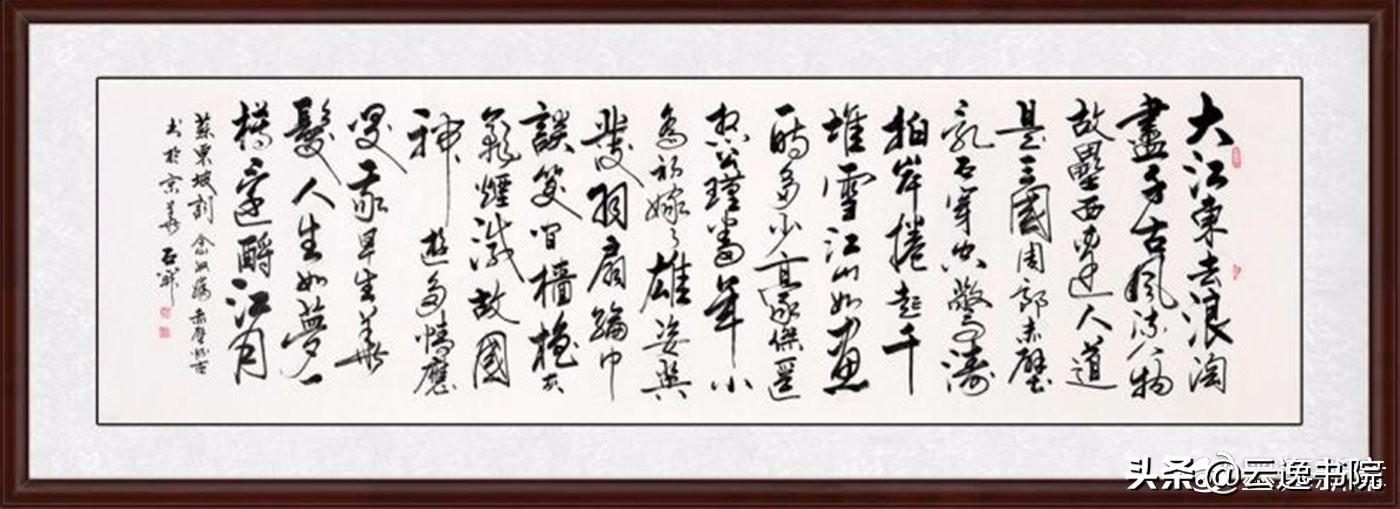 大江東去浪淘
盡千古風流人物
故壘西邊人道
是三國周郎赤壁
亂石穿空驚濤
拍岸捲起千
堆雪江山如畫
一時多少豪傑遙
想公瑾當年小
喬初嫁了雄姿英
發羽扇綸巾
談笑間檣櫓灰
飛煙滅故國
神遊多情應
笑我早生華
髮人生如夢一
樽還酹江月
蘇東坡詞念奴嬌赤壁懷古
書於京華
头条@云逸书院